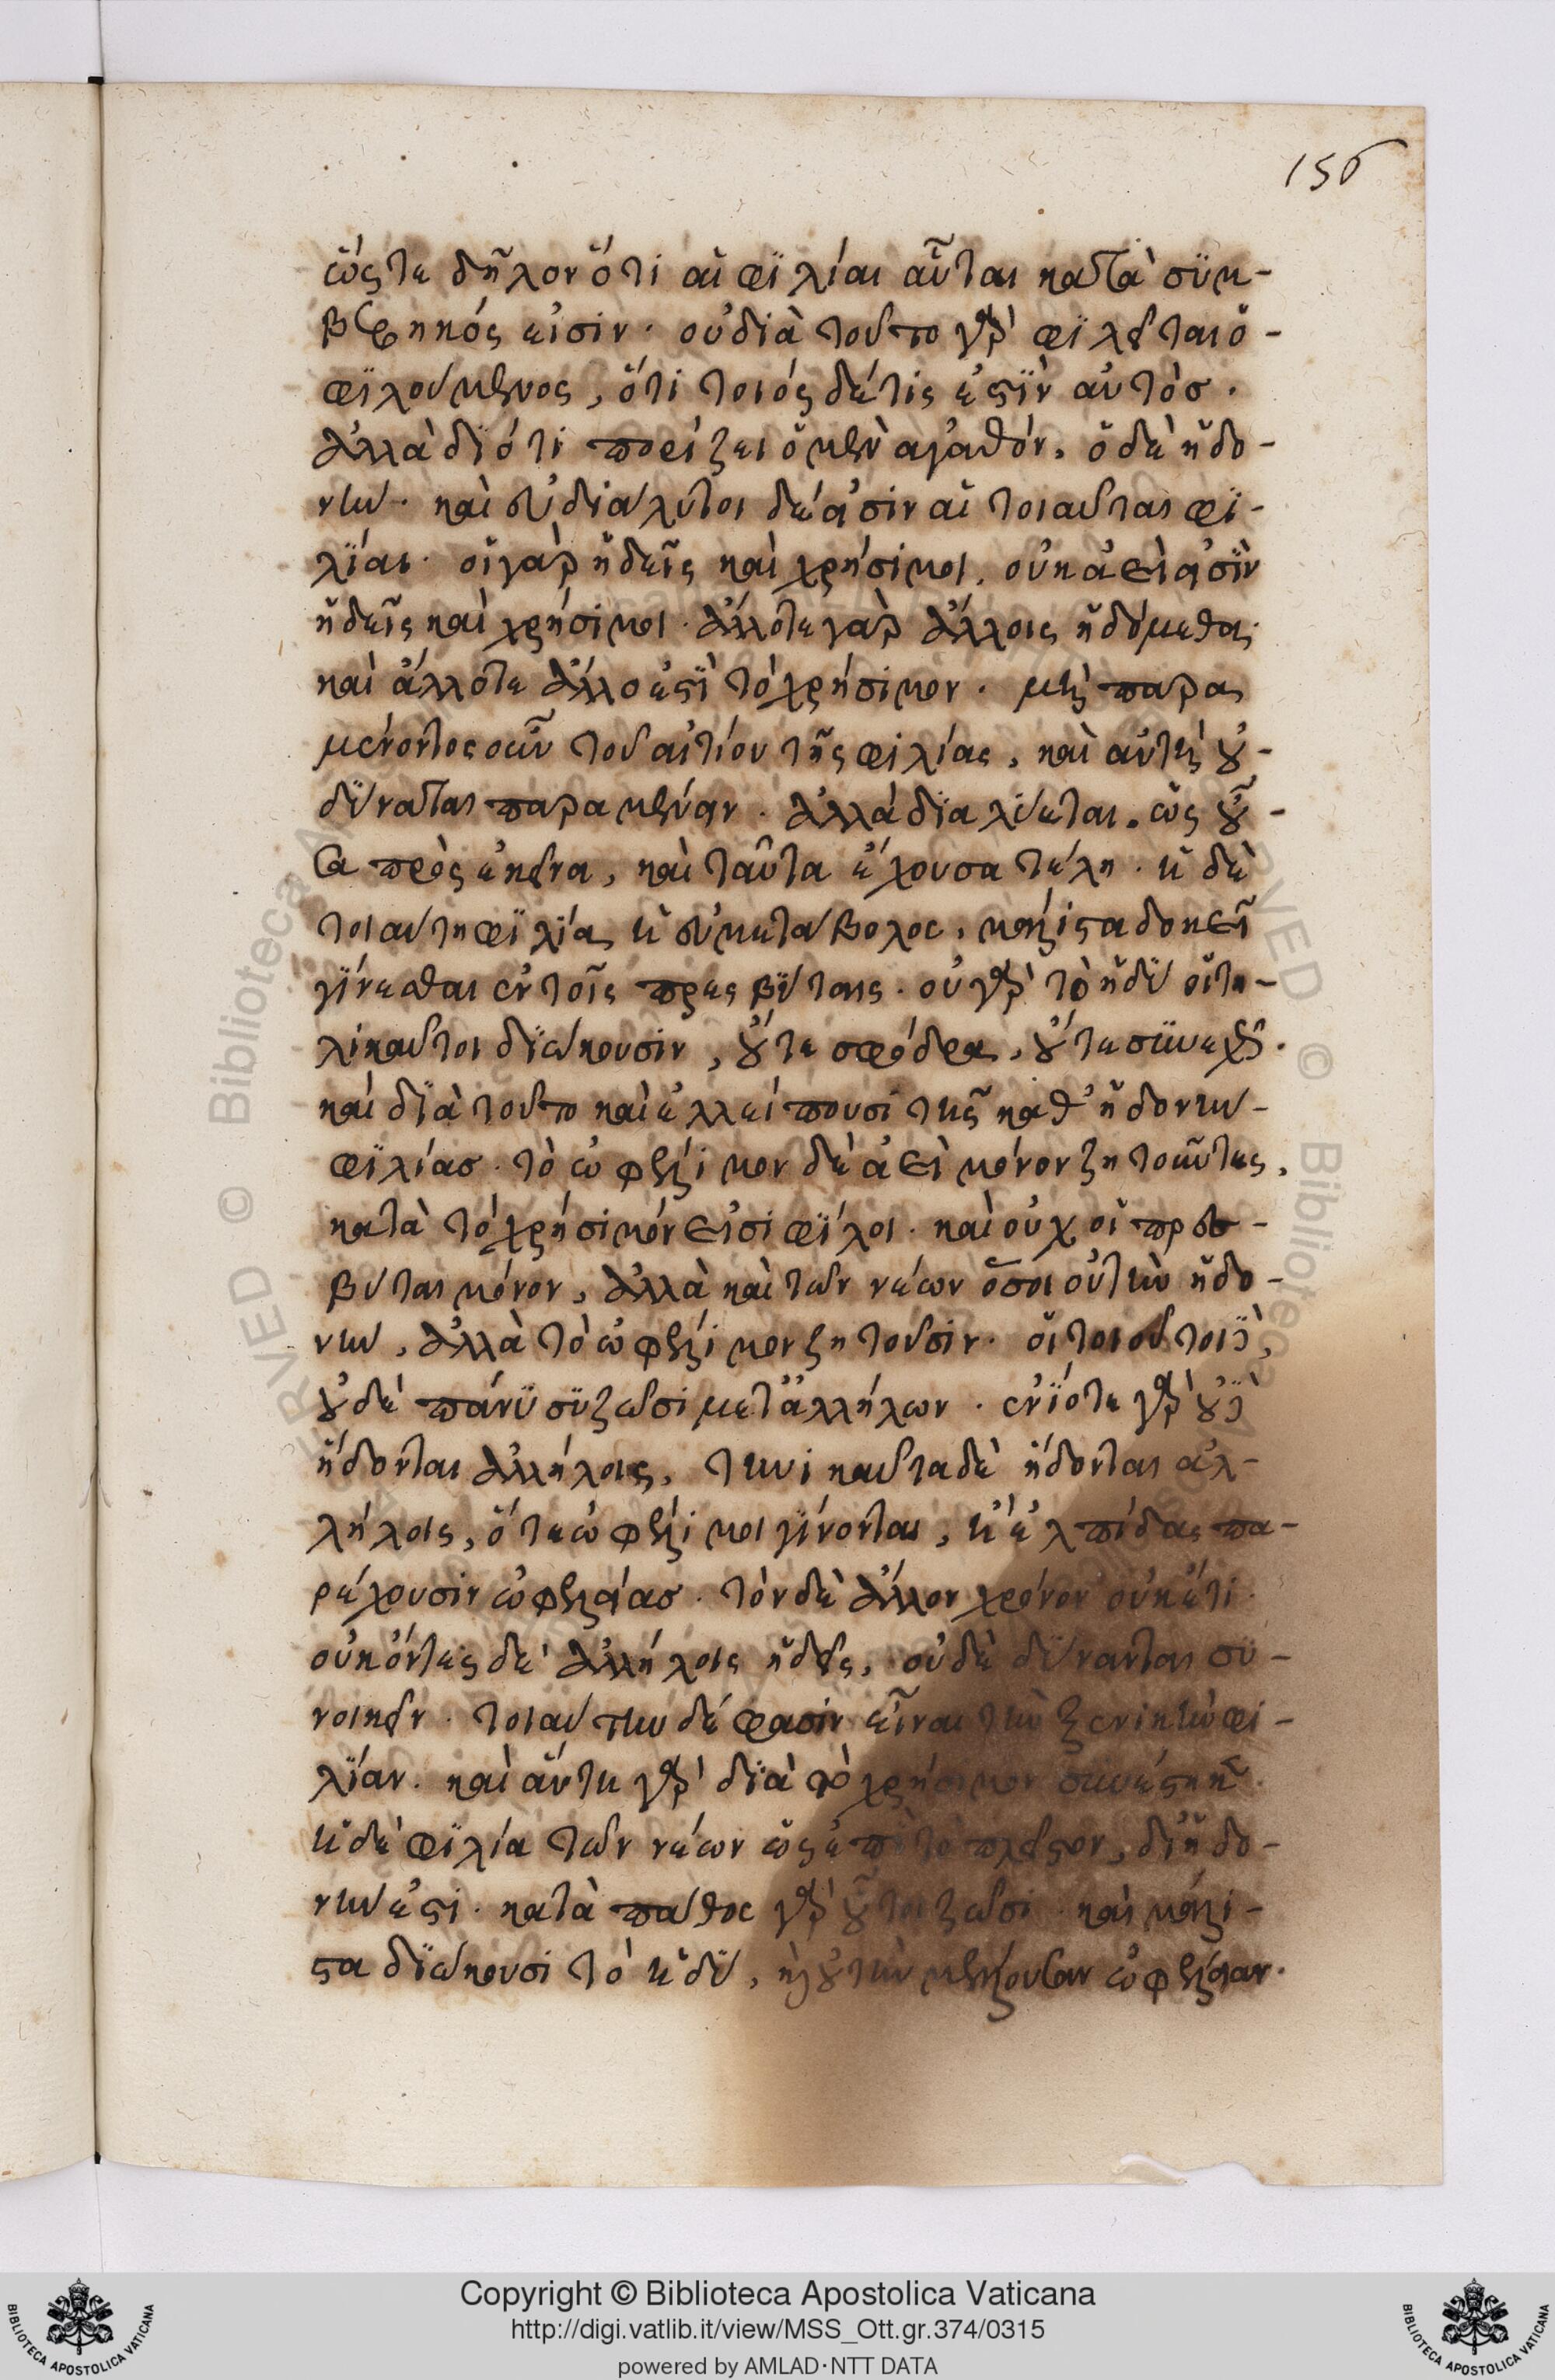 156
ὥςτε δῆλον ὅτι αἱ φιλίαι αὗται κατὰ συμ-
βεβηκός εἰσιν· οὐ διὰ τοῦτο γὰρ φιλεῖται ὁ
φιλούμενος, ὅτι τοιόςδέ τίς ἐστὶν αὐτὸσ.
ἀλλὰ διότι πορίζει ὁ μὲν ἀγαθόν, ὁ δὲ ἡδο-
νήν· καὶ εὐδιάλυτοι δέ εἰσιν αἱ τοιαῦται φι-
λίαι· οἱ γὰρ ἡδεῖς καὶ χρήσιμοι, οὐκ ἀεὶ εἰσὶν
ἡδεῖς καὶ χρήσιμοι· ἄλλοτε γὰρ ἄλλοις ἡδόμεθα,
καὶ ἄλλοτε ἄλλο ἐστὶ τὸ χρήσιμον. μὴ παρα
μένοντος οὖν τοῦ αἰτίου τῆς φιλίας, καὶ αὐτὴ οὐ
δύναται παραμένειν. ἀλλὰ διαλύεται. ὡς οὖ-
σα πρὸς ἐκεῖνα, καὶ ταῦτα ἔχουσα τέλη· ἡ δὲ
τοιαύτη φιλία, ἡ εὐμετάβολος, μάλιστα δοκεῖ
γίνεσθαι ἐν τοῖς πρεσβύταις. οὐ γὰρ τὸ ἡδὺ οἱ τη-
λικοῦτοι διώκουσιν, οὔτε σφόδρα, οὔτε συνεχῶς.
καὶ διὰ τοῦτο καὶ ἐλλείπουσι τῆς καθ' ἡδονὴν
φιλίασ. τὸ ὠφέλιμον δὲ ἀεὶ μόνον ζητοῦντες,
κατὰ τὸ χρήσιμόν εἰσι φίλοι. καὶ οὐχ οἱ πρεσ-
βύται μόνον, ἀλλὰ καὶ τῶν νέων ὅσοι οὐ τὴν ἡδο-
νήν, ἀλλὰ τὸ ὠφέλιμον ζητοῦσιν. οἱ τοιοῦτοι δὲ,
οὐδὲ πάνυ συζῶσι μετ' ἀλλήλων. ἐνίοτε γὰρ οὐδὲ
ἥδονται ἀλλήλοις, τηνικαῦτα δὲ ἥδονται ἀλ-
λήλοις, ὅτε ὠφέλιμοι γίνονται, ἢ ἐλπίδας πα-
ρέχουσιν ὠφελείασ. τὸν δὲ ἄλλον χρόνον οὐκέτι.
οὐκ ὄντες δὲ ἀλλήλοις ἡδεῖς, οὐδὲ δύνανται συ-
νοικεῖν. τοιαύτην δέ φασιν εἶναι τὴν ξενικὴν φι-
λίαν. καὶ αὕτη γὰρ διὰ τὸ χρήσιμον συνέστηκε.
ἡ δὲ φιλία τῶν νέων ὡς ἐπὶ τὸ πλεῖστον, δι' ἡδο-
νήν ἐστι. κατὰ πάθος γὰρ οὗτοι ζῶσι. καὶ μάλι-
στα διώκουσι τὸ ἡδὺ, καὶ οὐ τὴν μέλλουσαν ὠφέλειαν.
Copyright © Biblioteca Apostolica Vaticana
http://digi.vatlib.it/view/MSS_Ott.gr.374/0315
powered by AMLAD·NTT DATA
BIBLIOTECA APOSTOLICA VATICANA
BIBLIOTECA APOSTOLICA VATICANA